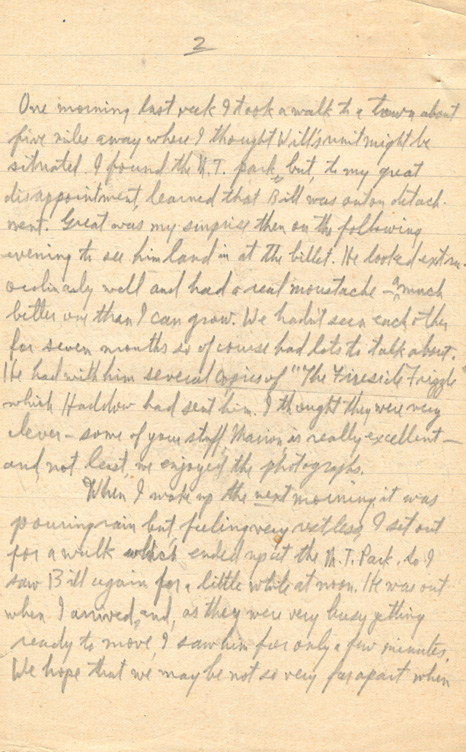 2
One morning last week I took a walk to a town about
five miles away where I thought Will's unit might be
situated. I found the M.T. park, but, to my great
disappointment, learned that Bill was out on detach-
ment. Great was my surprise then on the following
evening to see him land in at the billet. He looked extra-
ordinarily well and had a real moustache – a much
better one than I can grow. We hadn't seen each other
for seven months so of course had lots to talk about.
He had with him several copies of "The Fireside Frizzle"
which Haddow had sent him. I thought they were very
clever – some of your stuff, Marion is really excellent –
and not least we enjoyed the photographs.
When I woke up the next morning it was
pouring rain but feeling very restless, I set out
for a walk which ended up at the M.T. Park. So I
saw Bill again for a little while at noon. He was out
when I arrived, and, as they were very busy getting
ready to move I saw him for only a few minutes.
We hope that we may be not so very far apart when